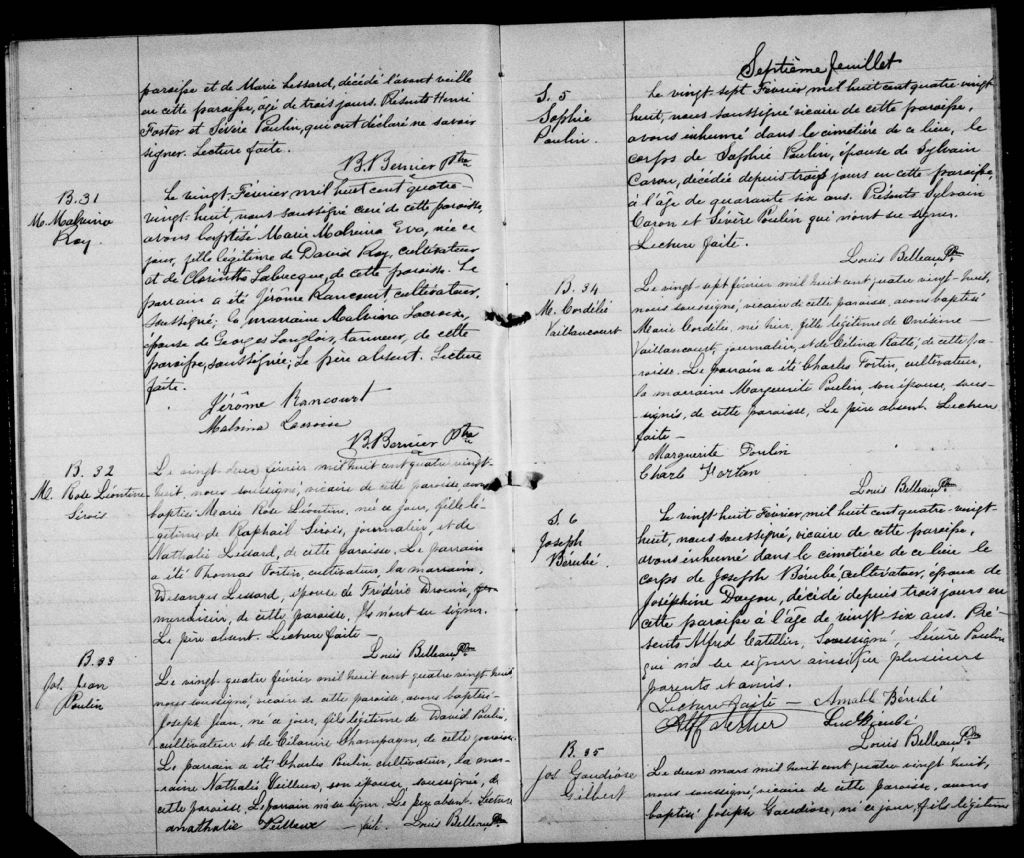 paroisse et de Marie Lessard, décédé l'avant veille
en cette paroisse, âgé de trois jours. Présents Henri
Foster et Sévère Poulin, qui ont déclaré ne savoir
signer. Lecture faite.
B. Bernier Ptre
B. 31
M. Malvina
Roy.
Le vingt Février mil huit cent quatre-
vingt-huit, nous soussigné curé de cette paroisse,
avons baptisé Marie Malvina Eva, née ce
jour, fille légitime de David Roy, cultivateur
et de Clorinthe Labrecque, de cette paroisse. Le
parrain a été Jérôme Rancourt, cultivateur,
soussigné; la marraine Malvina Lacroix,
épouse de Georges Langlois, tanneur, de cette
paroisse, soussignée; Le père absent. Lecture
faite.
Jérôme Rancourt
Malvina Lacroix
B. Bernier Ptre
B. 32
M. Rose Léontine
Sirois
Le vingt-deux février mil huit cent quatre vingt-
huit, nous soussigné, vicaire de cette paroisse avons
baptisé Marie Rose Léontine, née ce jour, fille lé-
gitime de Raphaël Sirois, journalier, et de
Nathalie Lessard, de cette paroisse. Le parrain
a été Thomas Fortin, cultivateur, la marraine,
Desanges Lessard, épouse de Frédéric Drouin,
de cette paroisse. Ils n'ont su signer.
Le père absent. Lecture faite —
Louis Belleau Ptre
B. 33
Jos. Jean
Poulin
Le vingt quatre février mil huit cent quatre vingt huit
nous soussigné, vicaire de cette paroisse, avons baptisé
Joseph Jean, né ce jour, fils légitime de David Poulin,
cultivateur et de Célanire Champagne, de cette paroisse.
Le parrain a été Charles Poulin, cultivateur, la mar-
raine Nathalie Veilleux, son épouse, soussignée, de
cette paroisse. Le parrain n'a su signer. Le père absent. Lecture
anathalie Veilleux — faite. Louis Belleau Ptre
Septième feuillet
S. 5
Sophie
Poulin.
Le vingt sept Février, mil huit cent quatre vingt
huit, nous soussigné vicaire de cette paroisse,
avons inhumé dans le cimetière de ce lieu, le
corps de Sophie Poulin, épouse de Sylvain
Caron, décédée depuis trois jours en cette paroisse,
à l'âge de quarante six ans. Présents Sylvain
Caron et Sévère Poulin qui n'ont su signer.
Lecture faite.
Louis Belleau Ptre
B. 34
M. Cordélie
Vaillancourt
Le vingt-sept février mil huit cent quatre vingt-huit,
nous soussigné, vicaire de cette paroisse, avons baptisé
Marie Cordélie, née hier, fille légitime de Onésime —
Vaillancourt, journalier, et de Célina Ratté, de cette pa-
roisse. Le parrain a été Charles Fortin, cultivateur,
la marraine Marguerite Poulin, son épouse, sous-
signés, de cette paroisse. Le père absent. Lecture
faite —
Marguerite Poulin
Charle Fortan
Louis Belleau Ptre
S. 6
Joseph
Bérubé.
Le vingt huit Février, mil huit cent quatre-vingt-
huit, nous soussigné, vicaire de cette paroisse,
avons inhumé dans le cimetière de ce lieu le
corps de Joseph Bérubé, cultivateur, époux de
Joséphine Doyon, décédé depuis trois jours en
cette paroisse à l'âge de vingt six ans. Pré-
sents Alfred Catellier, Soussigné, Sévère Poulin
qui n'a su signer ainsi que plusieurs
parents et amis.
Lecture faite — Amable Bérubé
Louis Belleau Ptre
B. 35
Jos. Gaudiose
Gilbert
Le deux mars mil huit cent quatre vingt huit,
nous soussigné, vicaire de cette paroisse, avons
baptisé Joseph Gaudiose, né ce jour, fils légitime